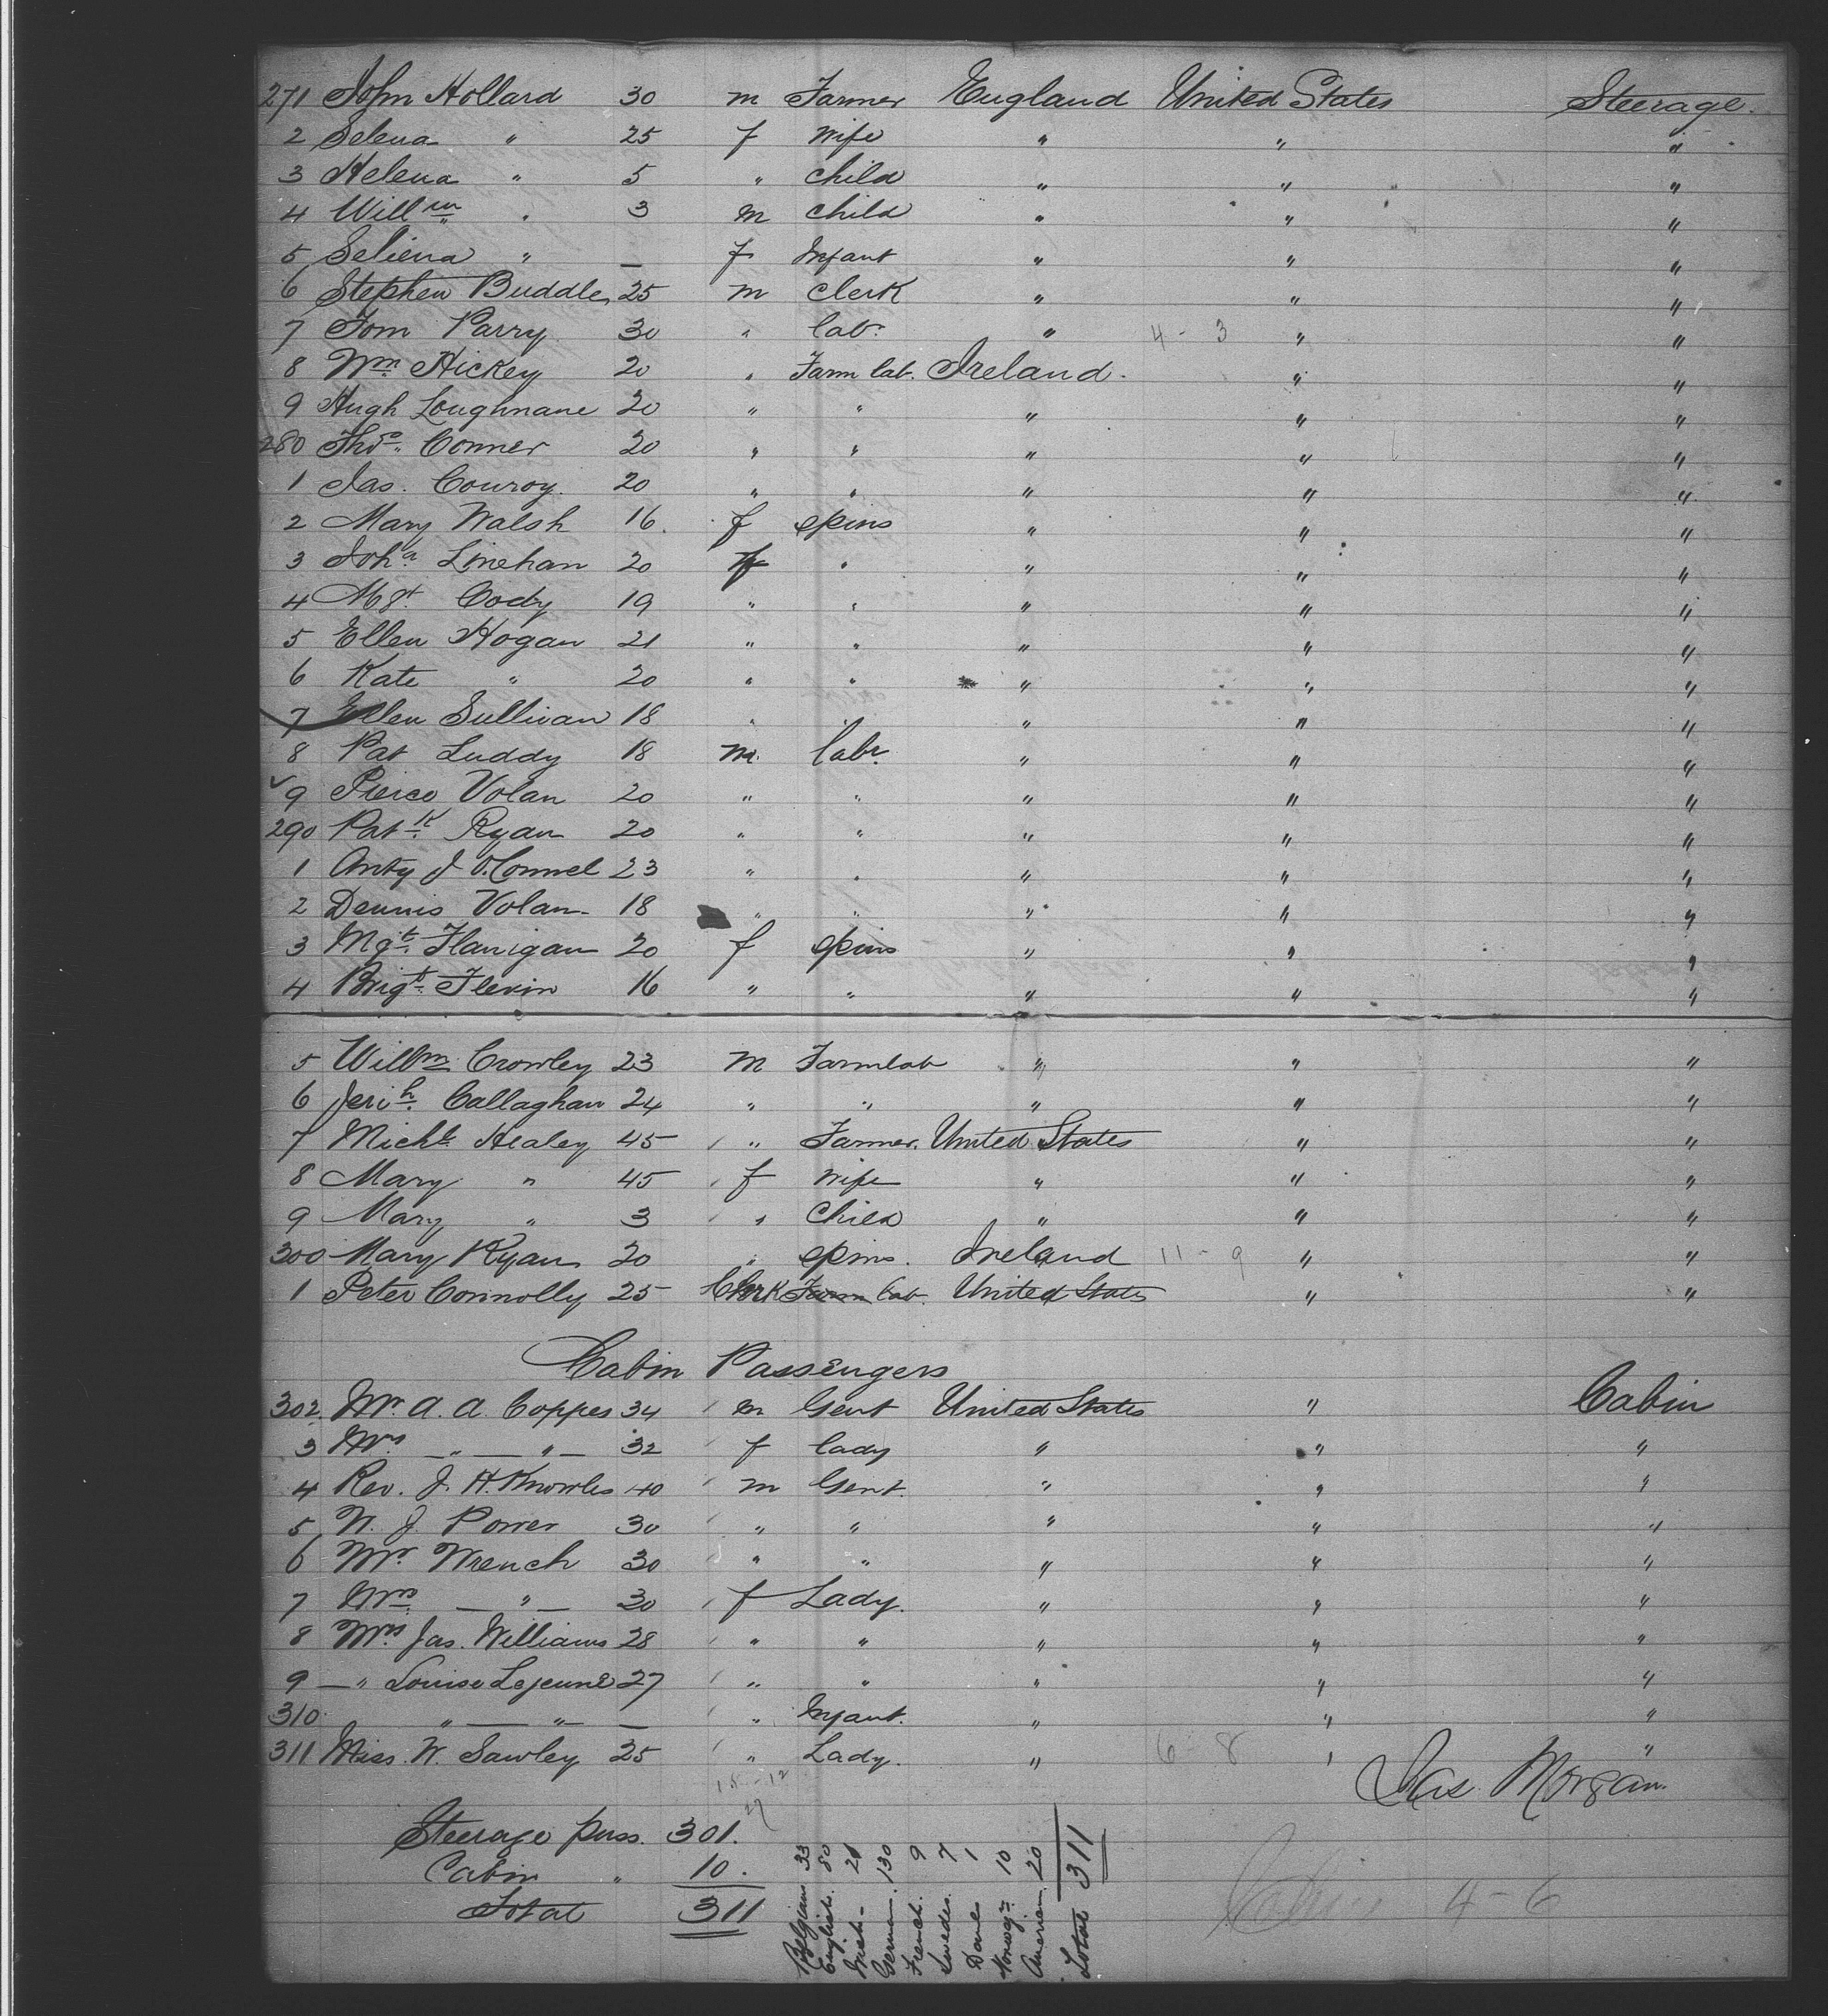 271 John Hollard 30 m Farmer England United States Steerage.
2 Selena " 25 f wife " " "
3 Helena " 5 " child " " "
4 Willm " 3 m child " " "
5 Seliena " — f Infant " " "
6 Stephen Buddle 25 m clerk " " "
7 Tom Parry 30 " labr. " 4 - 3 " "
8 Wm. Hickey 20 " Farm lab. Ireland. " "
9 Hugh Loughnane 20 " " " " "
280 Thos. Conner 20 " " " " "
1 Jas. Conroy. 20 " " " " "
2 Mary Walsh 16. f spins " " "
3 Joha Linehan 20 f " " " "
4 Mgt. Cody 19 " " " " "
5 Ellen Hogan 21 " " " " "
6 Kate " 20 " " " " "
7 Ellen Sullivan 18 " " " " "
8 Pat Luddy 18 m. labr. " " "
9 Pierce Volan 20 " " " " "
290 Patk. Ryan 20 " " " " "
1 Anty J O'Connel 23 " " " " "
2 Dennis Volan 18 " " " " "
3 Mgt. Flanigan 20 f spins " " "
4 Brigt. Flevin 16 " " " " "
5 Willm Crowley 23 m Farmlab " " "
6 Jerih. Callaghan 24 " " " " "
7 Michl. Healey 45 " Farmer. United States " "
8 Mary " 45 f wife " " "
9 Mary " 3 " Child " " "
300 Mary Ryan 20 " spins. Ireland 11 - 9 " "
1 Peter Connolly 25 Clerk Farm lab. United States " "
Cabin Passengers
302. Mr. A. A. Coppes 34 m Gent United States " Cabin
3 Mrs — " — " — 32 f lady " " "
4 Rev. J. H. Knowles 40 m Gent. " " "
5 W. J. Power 30 " " " " "
6 Mr. Wrench 30 " " " " "
7 Mrs — " — 30 f Lady. " " "
8 Mrs Jas. Williams 28 " " " " "
9 — " Louise Lejeune 27 " " " " "
310 " — " — — " Infant. " " "
311 Miss. W. Sawley 25 " Lady. " 6 - 8 " "
15 - 12
27
Jas Morgan.
Steerage pass. 301.
Cabin " 10.
Total 311
Belgians 33
English. 80
Irish - 21
German. 130
French. 9
Swedes. 7
Dane 1
Norwegs 10
American. 20
Total 311
Cabin 4 - 6